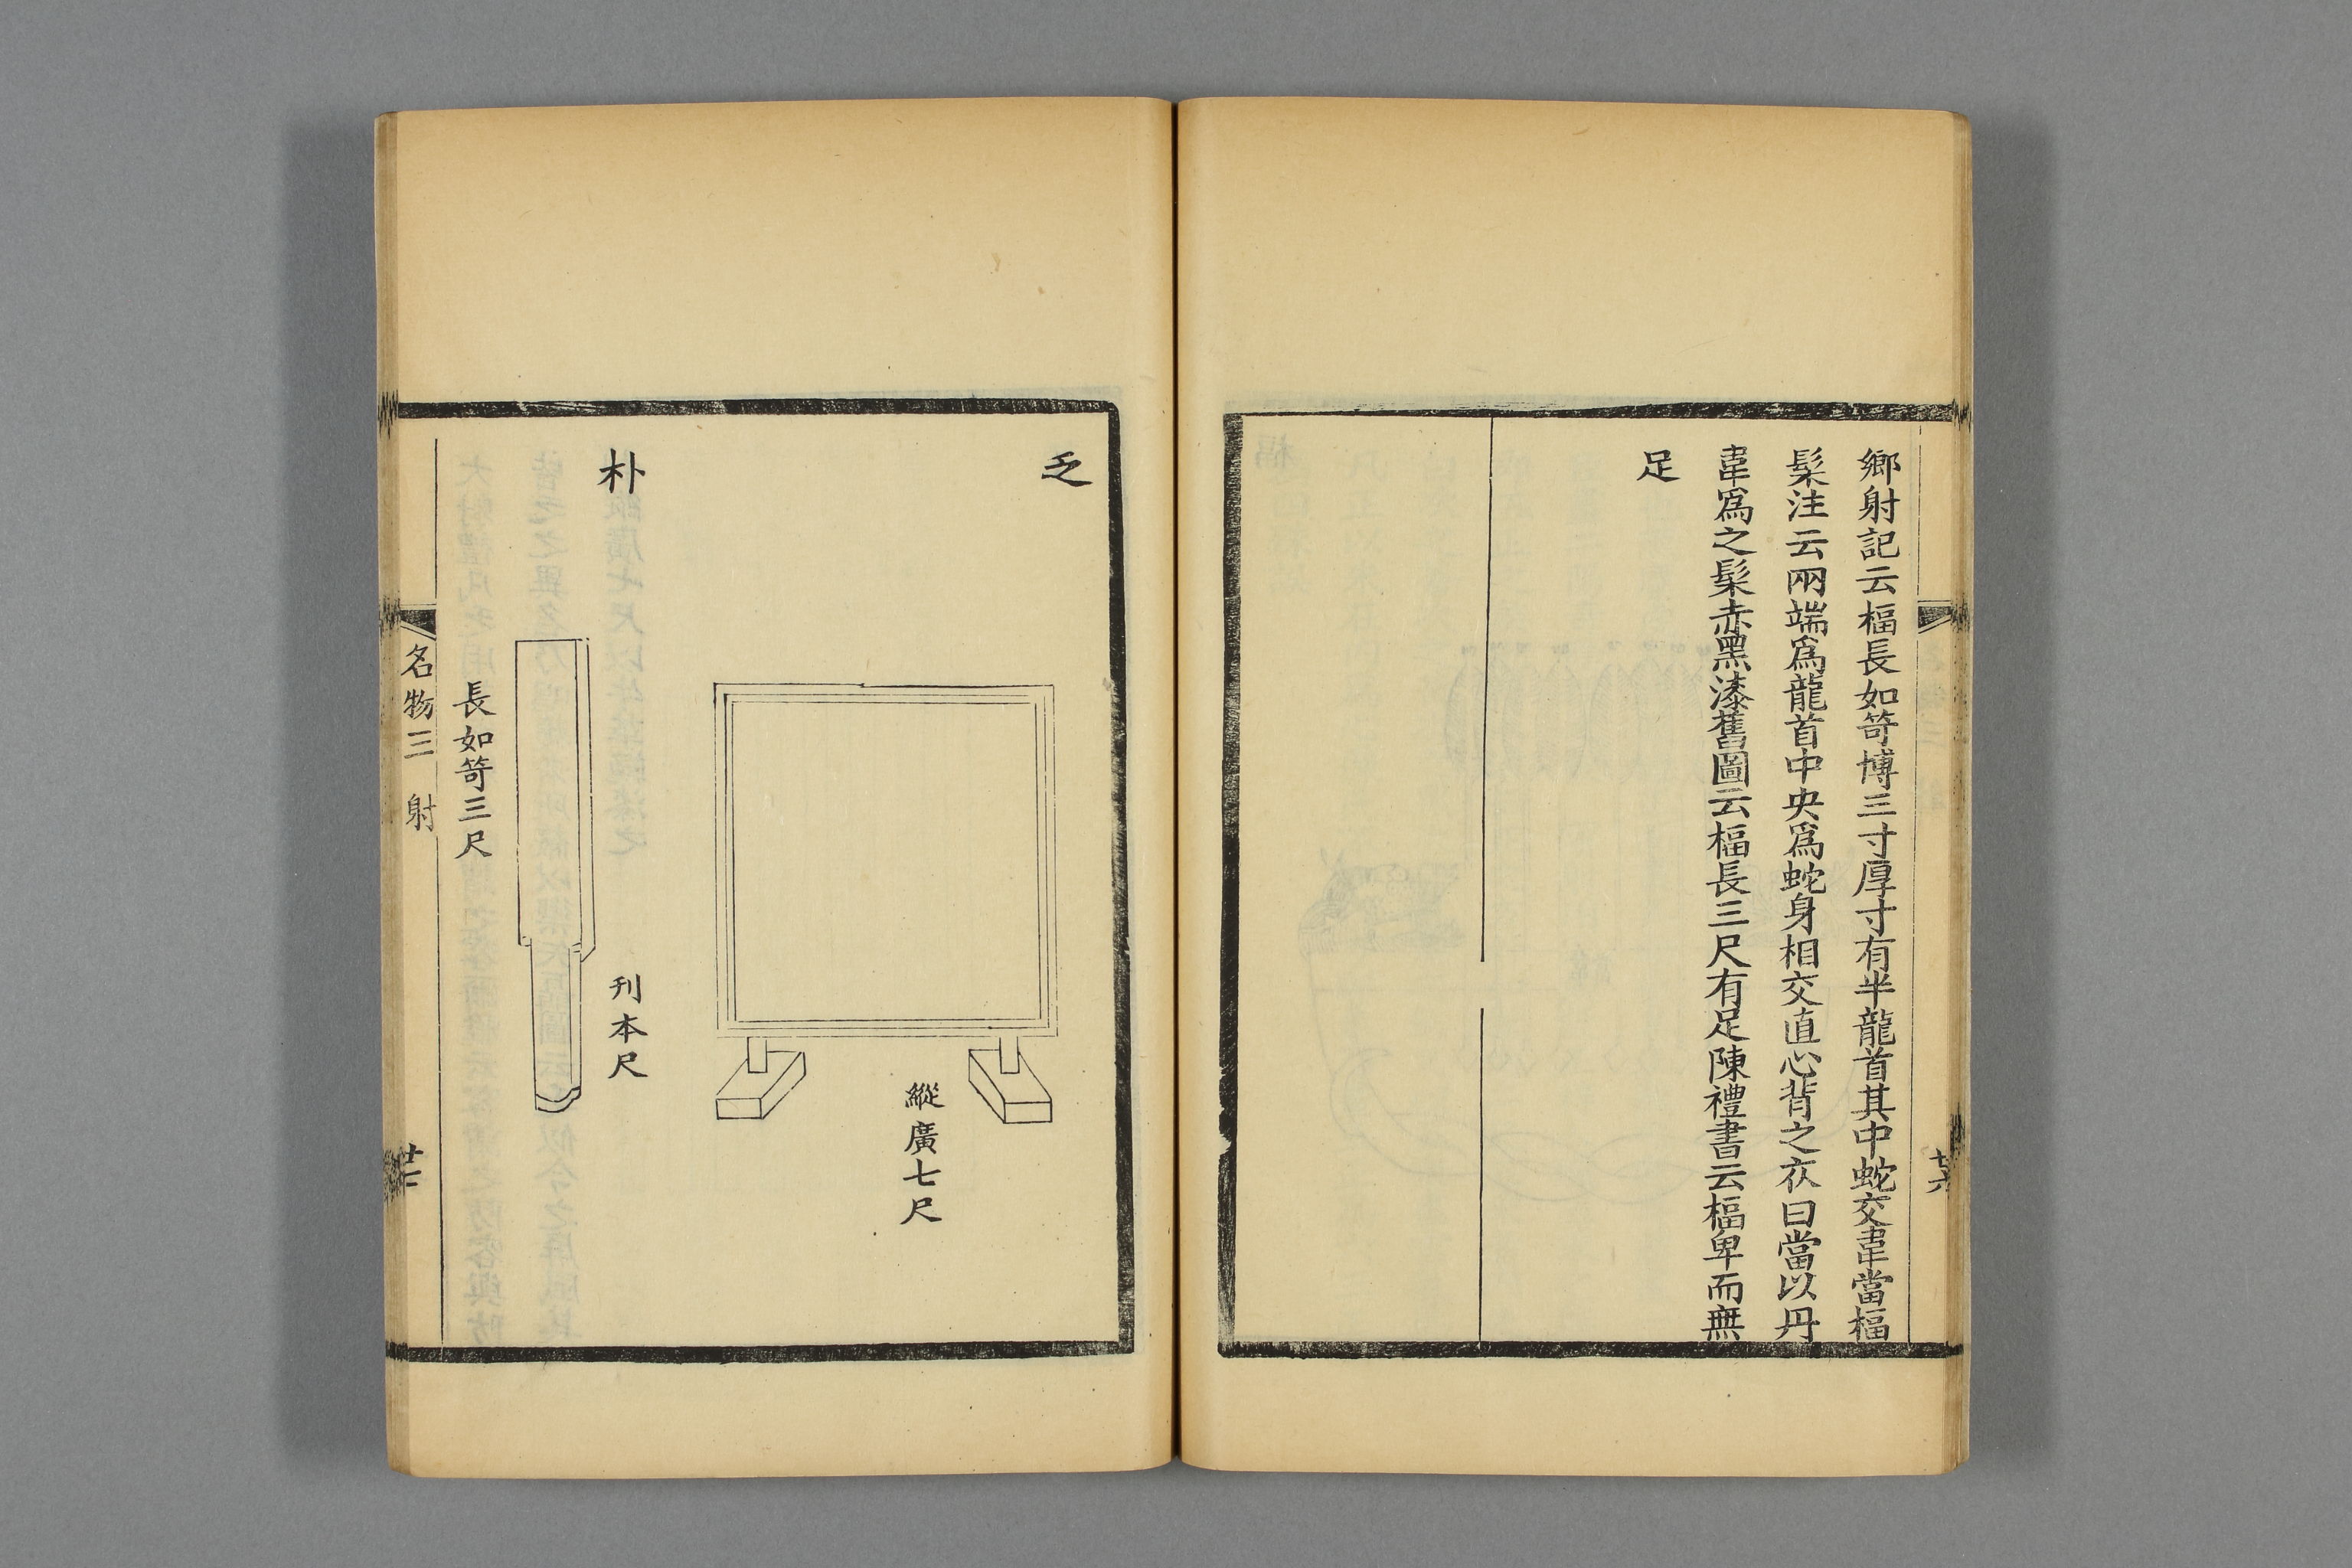 鄉射記云楅長如笴博三寸厚寸有半龍首其中蛇交韋當楅
髤注云兩端爲龍首中央爲蛇身相交直心背之衣曰當以丹
韋爲之髤赤黑漆舊圖云楅長三尺有足陳禮書云楅卑而無
足
乏
縱廣七尺
朴
刋本尺
長如笴三尺
名物三 射